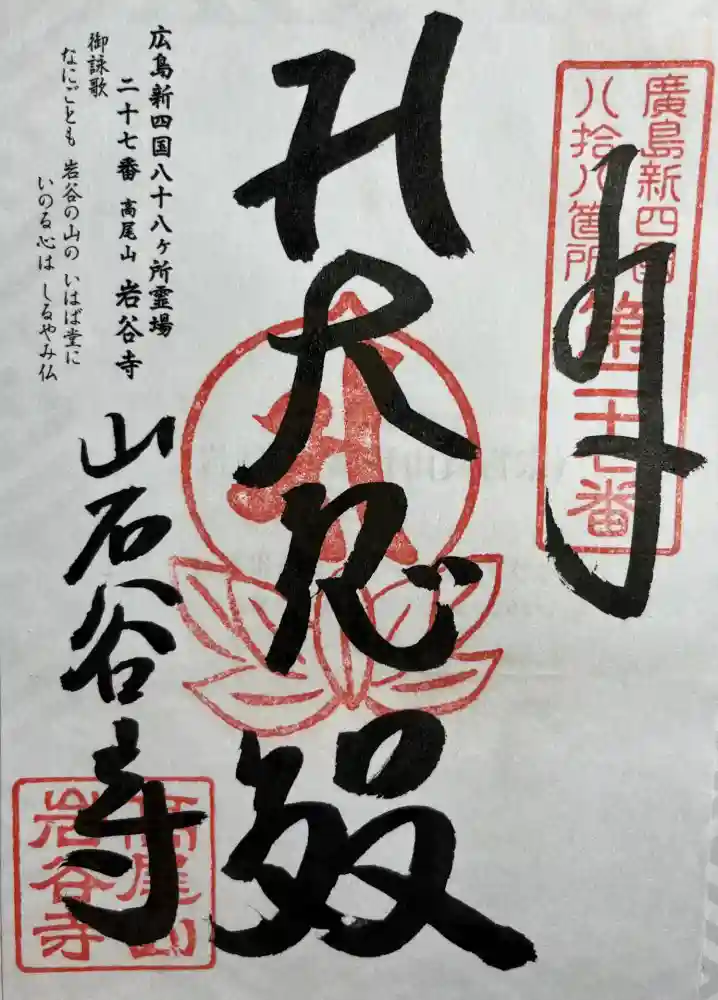 廣島新四国
八拾八箇所第二十七番
奉拝
弘大悲殿
広島新四国八十八ヶ所霊場
二十七番 高尾山 岩谷寺
御詠歌
なにごとも 岩谷の山の いはば堂に
いのる心は しるやみ仏
岩谷寺
高尾山
岩谷寺